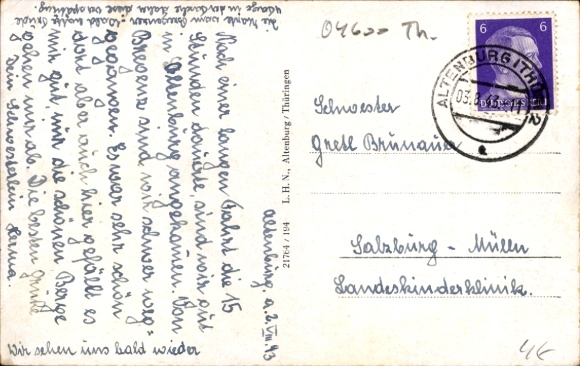 04600 Th.
6 6
DEUTSCHES REICH
ALTENBURG (THÜR)
Schwester
Gretl Brunauer
Salzburg - Müllen
Landeskinderklinik.
4€
21764 / 194 L. H. N., Altenburg / Thüringen
Altenburg a. 2. VIII. 43
Nach einer langen Fahrt die 15
Stunden dauerte, sind wir gut
in Altenburg angekommen. Von
Bregenz sind wir schwer weg-
gegangen. Es war sehr schön
dort aber auch hier gefällt es
mir gut, nur die schönen Berge
gehen mir ab. Die besten Grüße
Dein Schwesterlein Herma.
Wir sehen uns bald wieder